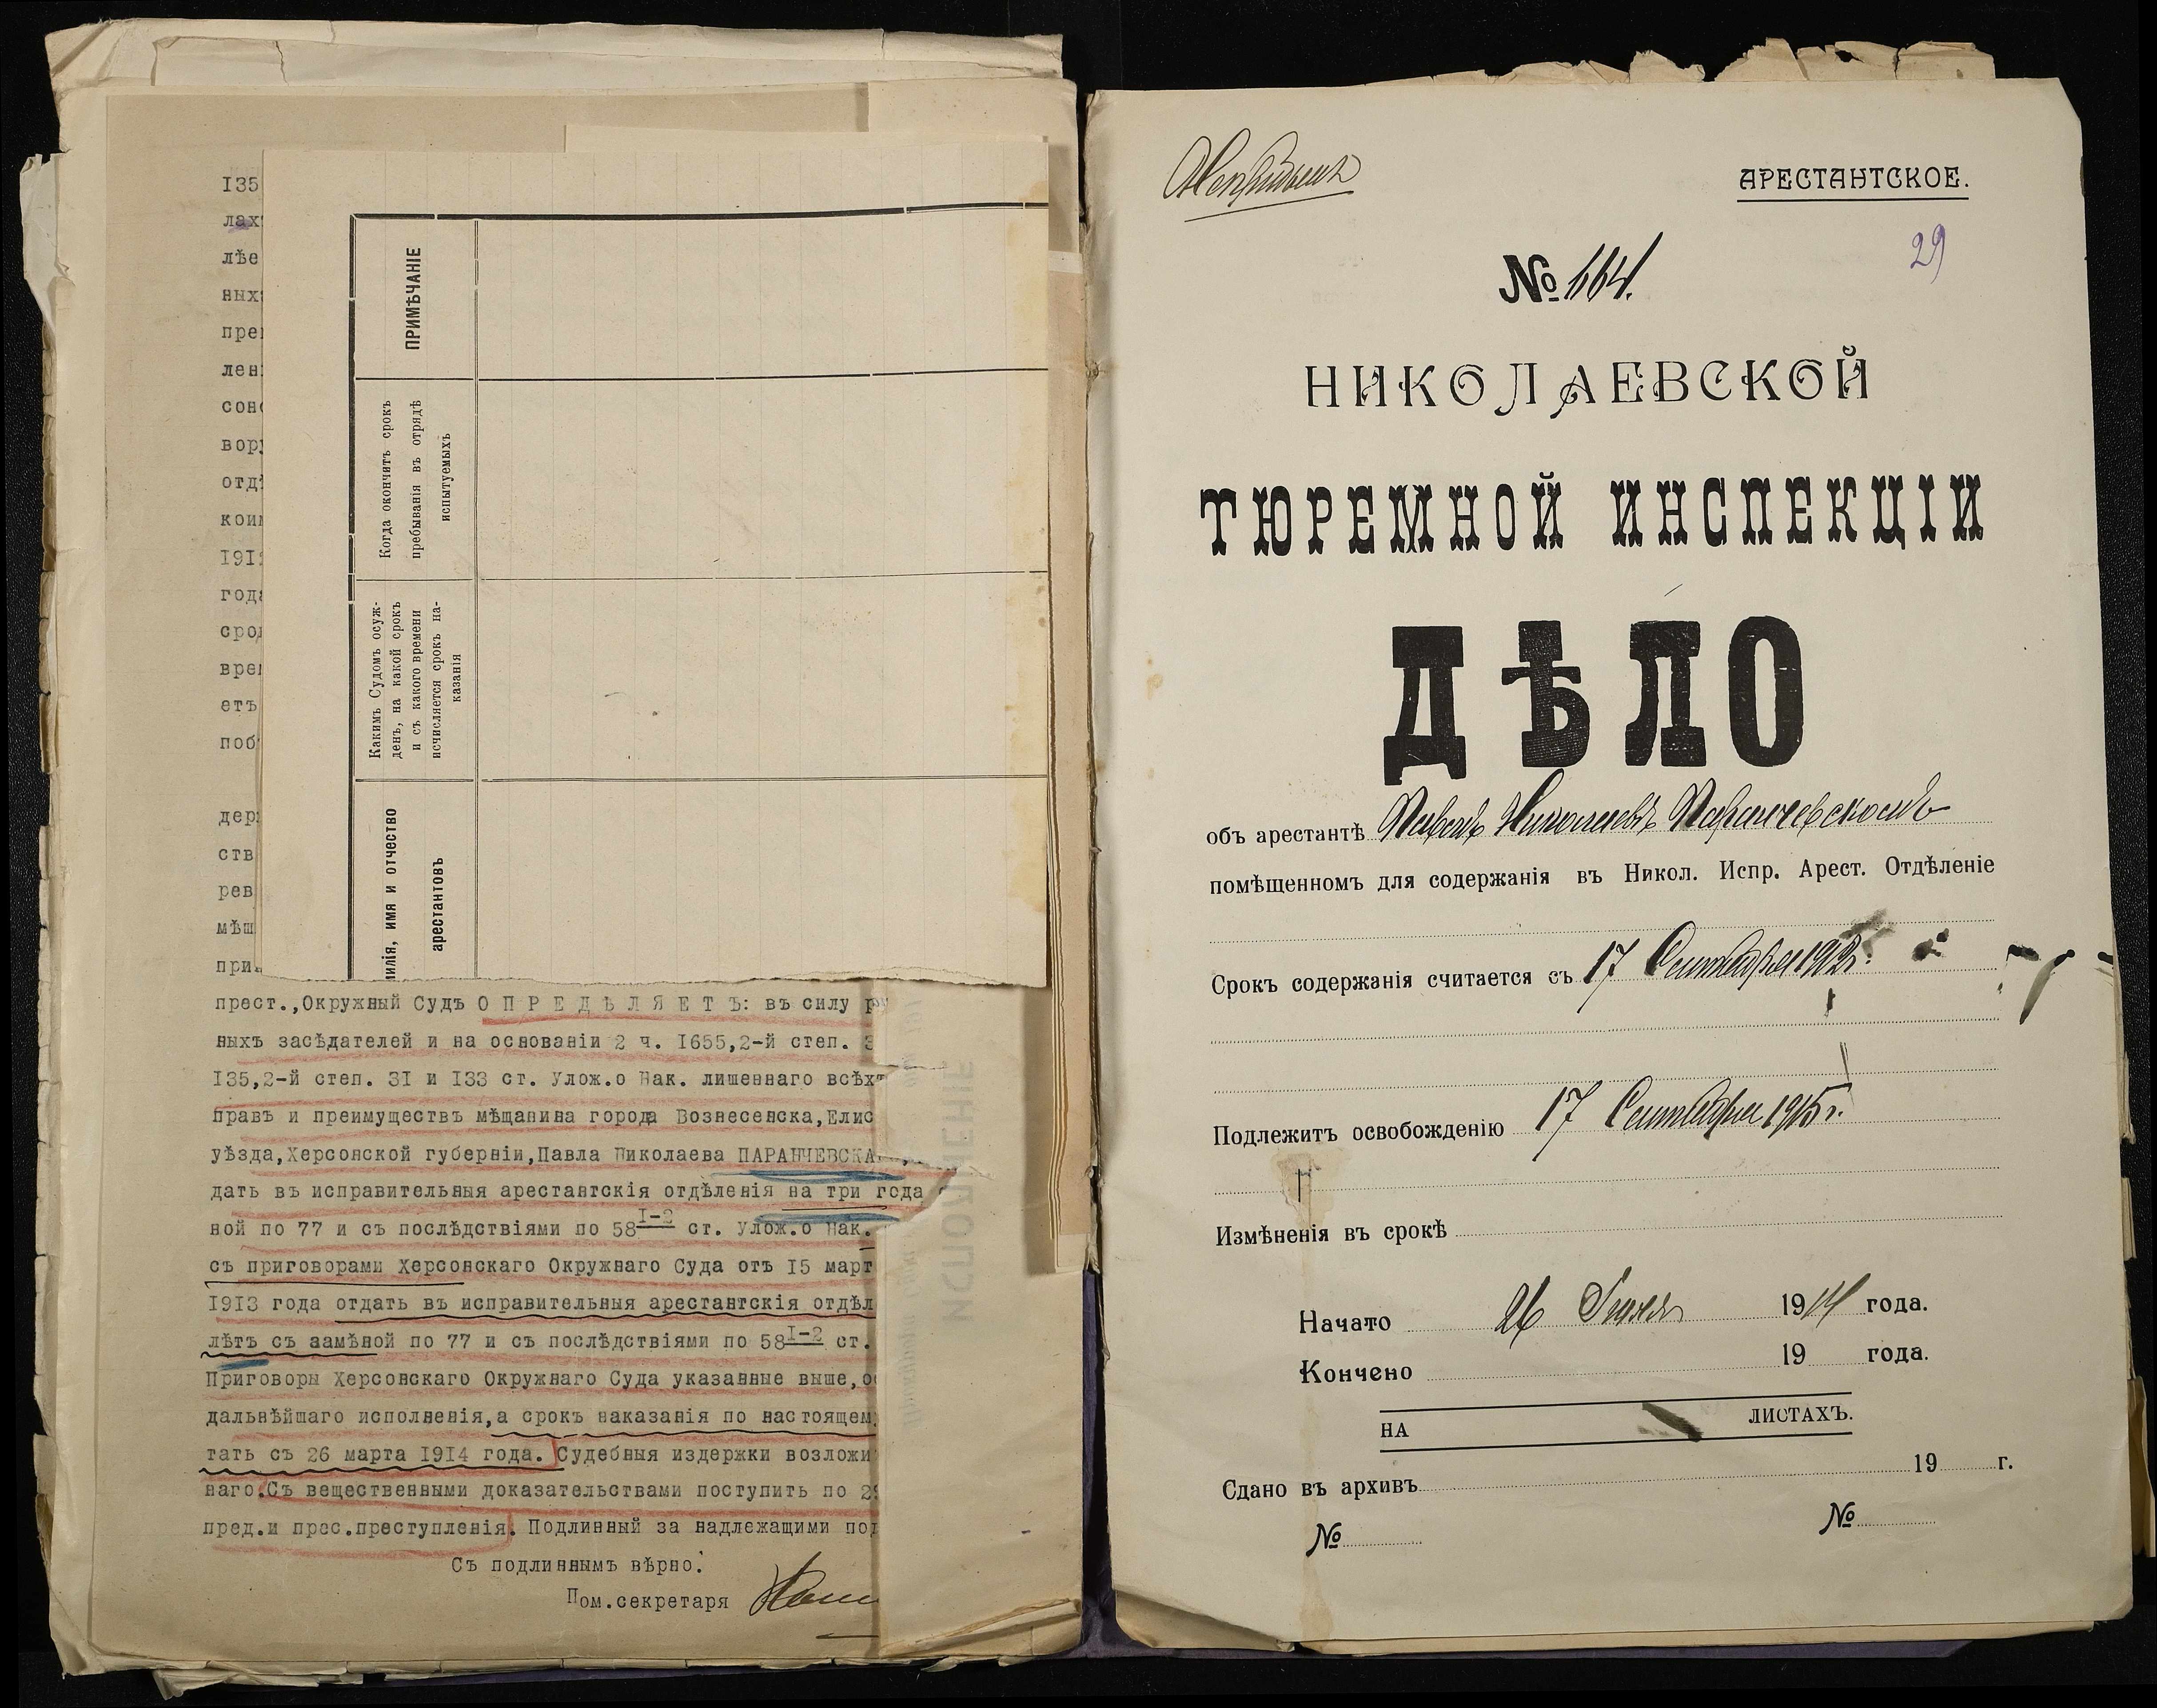 135
лах
лѣе
ных
пре
лен
сон
вор
отд
кои
191
год
сро
вре
етъ
поб
дер
ств
рев
мѣщ
при
ПРИМѢЧАНІЕ
Когда окончитъ срокъ
пребыванія въ отрядѣ
испытуемыхъ
Какимъ Судомъ осуж-
денъ, на какой срокъ
и съ какого времени
исчисляется срокъ на-
казанія
милія, имя и отчество
арестантовъ
прест.,Окружный Судъ О П Р Е Д Ѣ Л Я Е Т Ъ: въ силу
ныхъ засѣдателей и на основаніи 2 ч. 1655,2-й степ. 3
135,2-й степ. 31 и 133 ст. Улож.о Нак. лишеннаго всѣхъ
правъ и преимуществъ мѣщанина города Вознесенска,Елис
уѣзда,Херсонской губерніи,Павла Николаева ПАРАНЧЕВСКА
дать въ исправительныя арестантскія отдѣленія на три года
ной по 77 и съ послѣдствіями по 58 1-2 ст. Улож.о Нак.
съ приговорами Херсонскаго Окружнаго Суда отъ 15 март
1913 года отдать въ исправительныя арестантскія отдѣл
лѣтъ съ замѣной по 77 и съ послѣдствіями по 58 1-2 ст.
Приговоры Херсонскаго Окружнаго Суда указанные выше,о
дальнѣйшаго исполненія,а срокъ наказанія по настоящем
тать съ 26 марта 1914 года. Судебныя издержки возложи
наго.Съ вещественными доказательствами поступить по 2
пред.и прес.преступленія. Подлинный за надлежащими под
Съ подлиннымъ вѣрно:
Пом.секретаря
ИСПОЛНЕНІЕ
АРЕСТАНТСКОЕ.
29
№ 664.
НИКОЛАЕВСКОЙ
ТЮРЕМНОЙ ИНСПЕКЦІИ
ДѢЛО
объ арестантѣ Павлѣ Николаевѣ Паранчевскомъ
помѣщенномъ для содержанія въ Никол. Испр. Арест. Отдѣленіе
Срокъ содержанія считается съ 17 Сентября 1912г.
Подлежитъ освобожденію 17 Сентября 1915г.
Измѣненія въ срокѣ
Начато 26 Іюля 1914 года.
Кончено 19 года.
НА ЛИСТАХЪ.
Сдано въ архивъ 19 г.
№ №